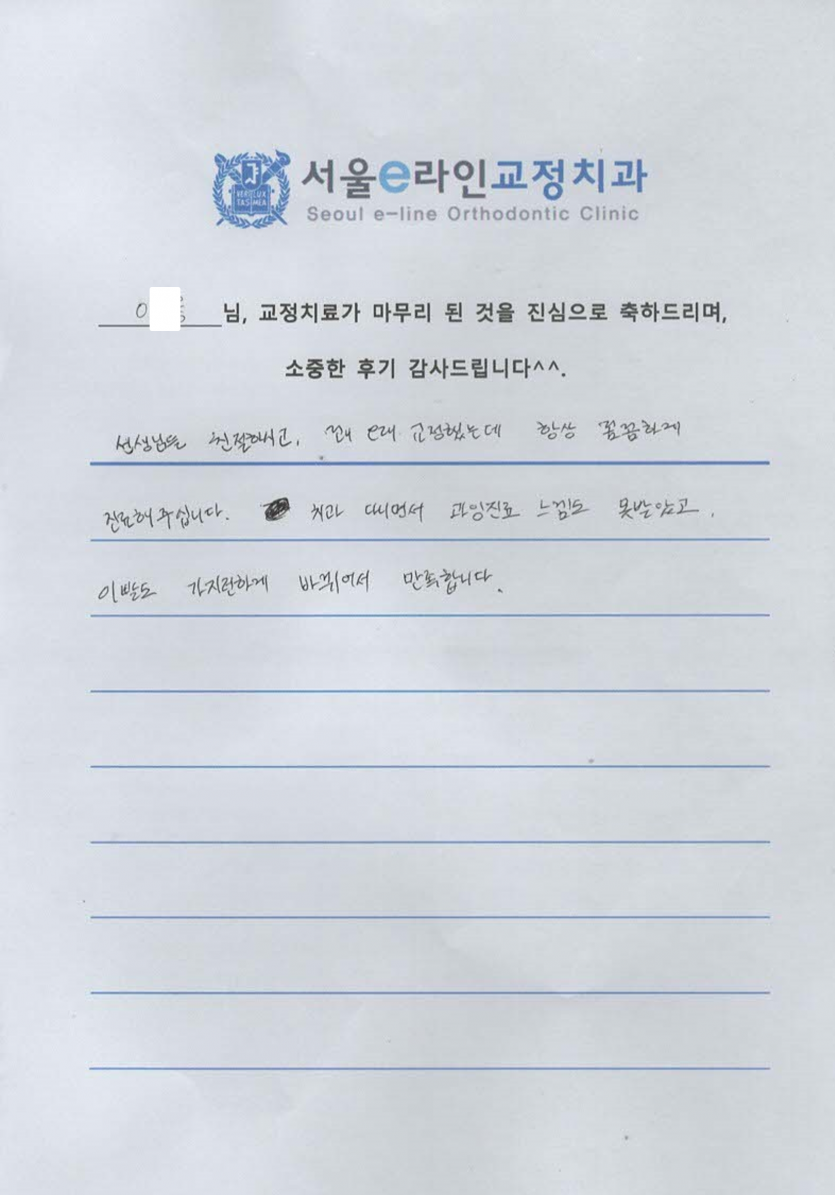 서울e라인교정치과
Seoul e-line Orthodontic Clinic
님, 교정치료가 마무리 된 것을 진심으로 축하드리며,
소중한 후기 감사드립니다^^.
선생님들 친절하시고, 꽤 오래 교정했는데 항상 꼼꼼하게
진료해주십니다. 치과 다니면서 과잉진료 느낌도 못받았고,
이빨도 가지런하게 바뀌어서 만족합니다.